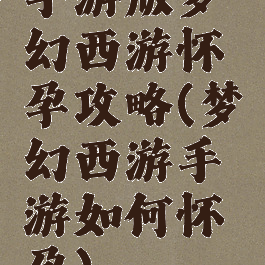 手游版梦
幻西游怀
孕攻略(梦
幻西游手
游如何怀
孕)